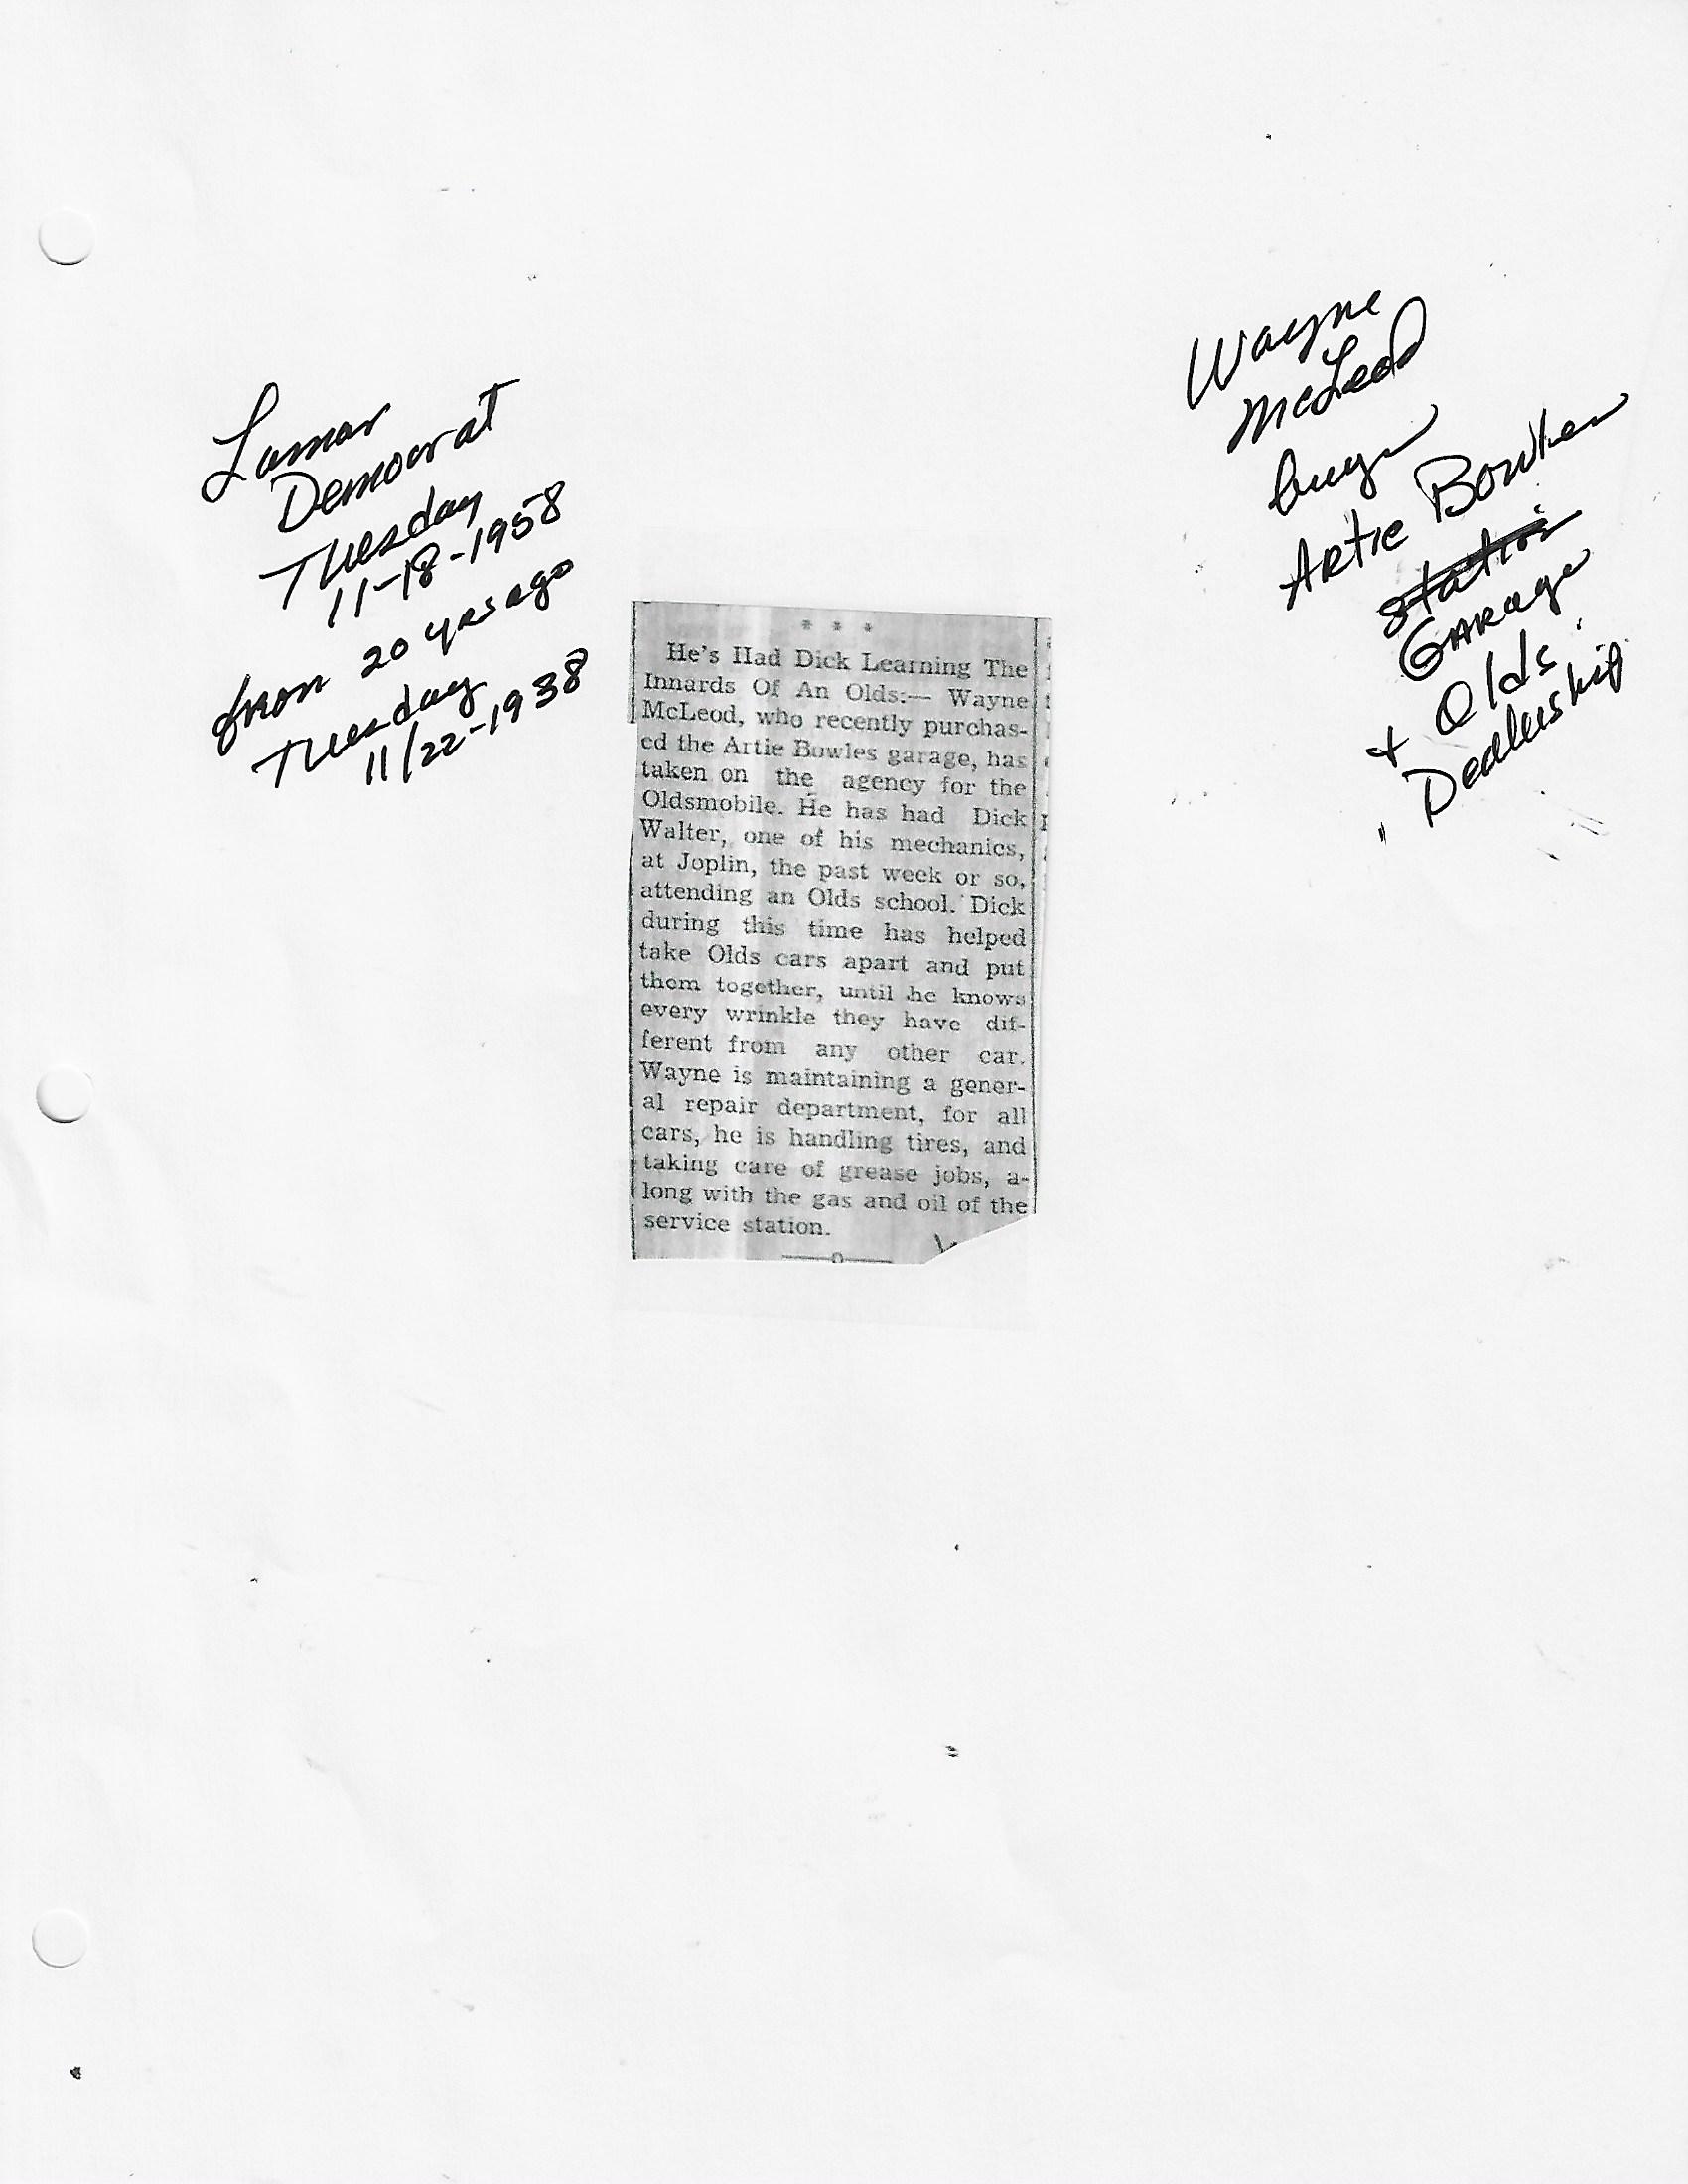 Lamar
Democrat
Tuesday
11-18-1958
from 20 yrs ago
Tuesday
11/22-1938
Wayne
McLeod
buys
Artie Bowles
station
Garage
+ Olds
Dealership
* * *
He's Had Dick Learning The
Innards Of An Olds:— Wayne
McLeod, who recently purchas-
ed the Artie Bowles garage, has
taken on the agency for the
Oldsmobile. He has had Dick
Walter, one of his mechanics,
at Joplin, the past week or so,
attending an Olds school. Dick
during this time has helped
take Olds cars apart and put
them together, until he knows
every wrinkle they have dif-
ferent from any other car.
Wayne is maintaining a gener-
al repair department, for all
cars, he is handling tires, and
taking care of grease jobs, a-
long with the gas and oil of the
service station.
——o——